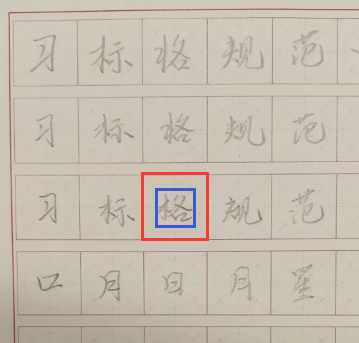 习标格规范
习标格规范
习标格规范
口月日月星